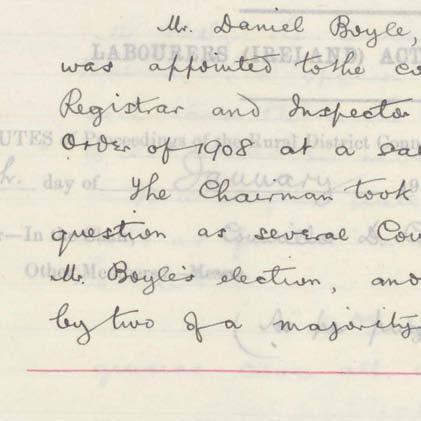 Mr. Daniel Boyle,
was appointed to the co
Registrar and Inspecto
Order of 1908 at a sal
The Chairman took
question as several Cou
Mr. Boyle's election, and
by two of a majority
LABOURERS (IRELAND) ACT
UTES Proceedings of the Rural District Coun
day of January 19
In the
Other Me